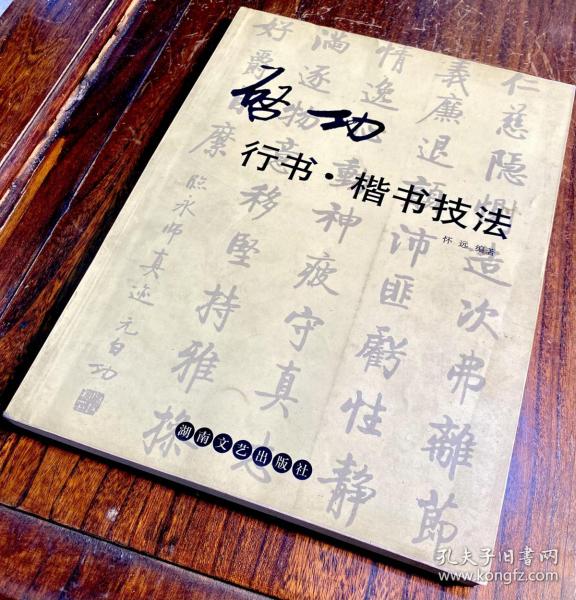 启功
行书·楷书技法
怀远 编著
仁慈隱惻造次弗離節
義廉退顛沛匪虧性靜
情逸動神疲守真志
滿逐物意移堅持雅操
好爵縻
臨永師真迹 元白功
湖南文艺出版社
孔夫子旧书网
www.kongfz.com